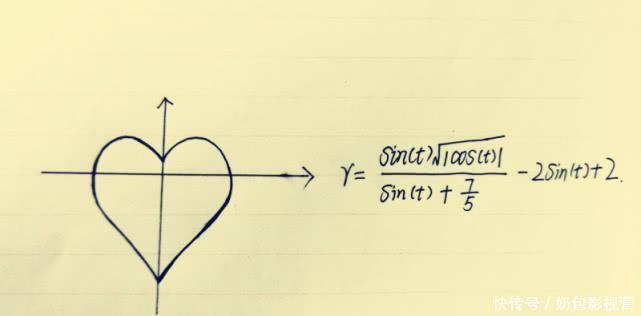 r = \frac{sin(t)\sqrt{|cos(t)|}}{sin(t) + \frac{7}{5}} - 2sin(t) + 2.
快传号 / 奶包影视营